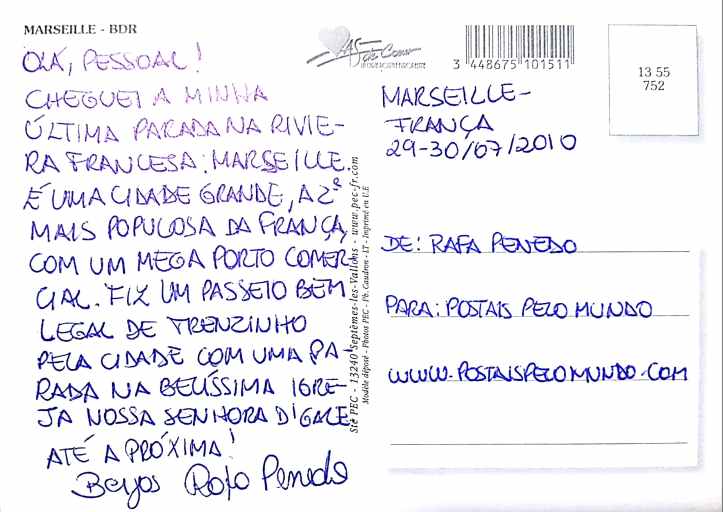 MARSEILLE - BDR
OLÁ, PESSOAL!
CHEGUEI A MINHA
ÚLTIMA PARADA NA RIVIE-
RA FRANCESA: MARSEILLE.
É UMA CIDADE GRANDE, A 2ª
MAIS POPULOSA DA FRANÇA,
COM UM MEGA PORTO COMER-
CIAL. FIZ UM PASSEIO BEM
LEGAL DE TRENZINHO
PELA CIDADE COM UMA PA-
RADA NA BELÍSSIMA IGRE-
JA NOSSA SENHORA D'GARE.
ATÉ A PRÓXIMA!
Beijos Rafa Penedo
Sté PEC - 13240 Septèmes-les-Vallons - www.pec-fr.com
Modèle déposé - Photos PEC - Ph. Caudron - LT - Imprimé en U.E
3 448675 101511
13 55
752
MARSEILLE-
FRANÇA
29-30/07/2010
DE: RAFA PENEDO
PARA: POSTAIS PELO MUNDO
WWW.POSTAISPELOMUNDO.COM